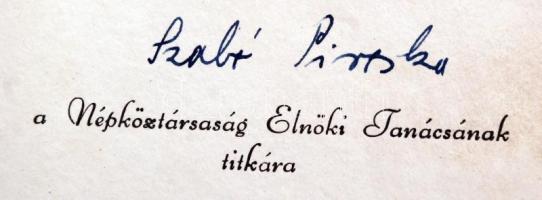 Szabó Piroska
a Népköztársaság Elnöki Tanácsának
titkára